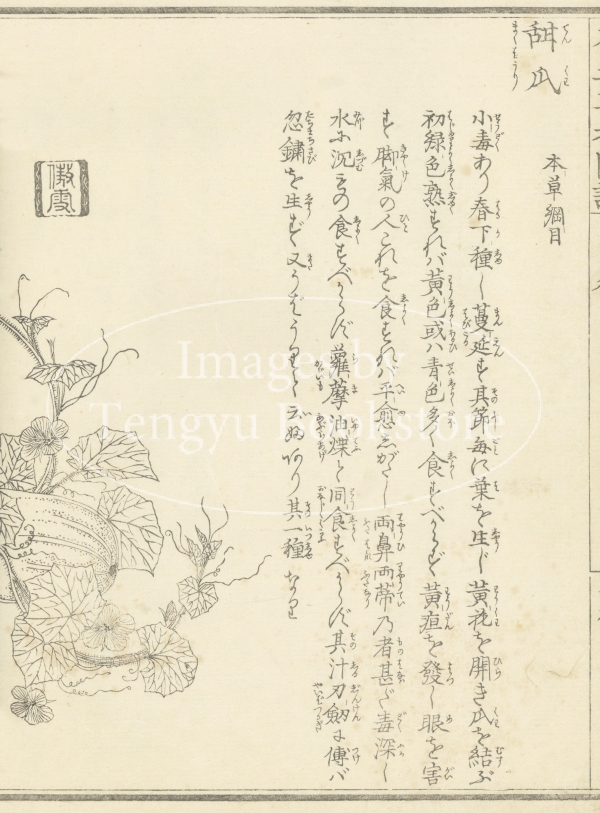 甜瓜
本草綱目
小毒あり春下種し蔓延す其節毎に葉を生じ黄花を開き瓜を結ぶ
初緑色熟すれバ黄色或ハ青色多く食すべからず黄疸を發し眼を害
す脚氣の人これを食すれバ平愈しがたし両鼻両蔕乃者甚だ毒深し
水に沉もの食すべからず蘿藦油煠と同食すべからず其汁刃劔に傳バ
忽鏽を生ず又うすうりと云ふあり其一種なり
傲雪
Imaged by
Tengyu Bookstore